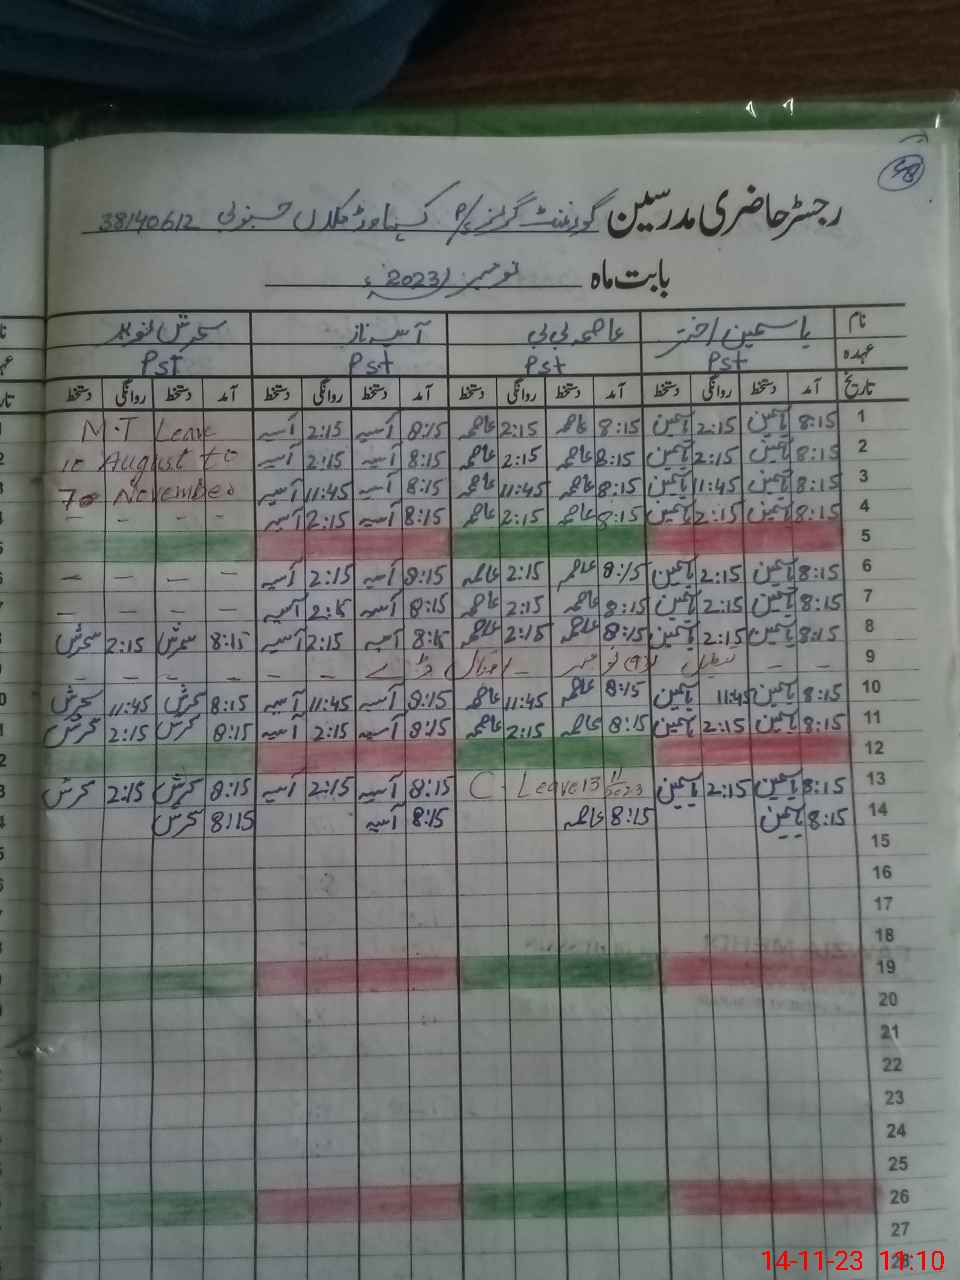 38
رجسٹر حاضری مدرسین گورنمنٹ گرلز P/S کلاں جنوبی 38140612
بابت ماہ نومبر 2023ء
نام یاسمین اختر عاصمہ بی بی آسیہ ناز سحرش
عہدہ Pst Pst Pst Pst
تاریخ آمد دستخط روانگی دستخط آمد دستخط روانگی دستخط آمد دستخط روانگی دستخط آمد دستخط روانگی دستخط
1 8:15 یاسمین 2:15 یاسمین 8:15 عاصمہ 2:15 عاصمہ 8:15 آسیہ 2:15 آسیہ M.T Leave
2 8:15 یاسمین 2:15 یاسمین 8:15 عاصمہ 2:15 عاصمہ 8:15 آسیہ 2:15 آسیہ 10 August to
3 8:15 یاسمین 11:45 یاسمین 8:15 عاصمہ 11:45 عاصمہ 8:15 آسیہ 11:45 آسیہ 7 November
4 8:15 یاسمین 2:15 یاسمین 8:15 عاصمہ 2:15 عاصمہ 8:15 آسیہ 2:15 آسیہ - - - -
5
6 8:15 یاسمین 2:15 یاسمین 8:15 عاصمہ 2:15 عاصمہ 8:15 آسیہ 2:15 آسیہ - - - -
7 8:15 یاسمین 2:15 یاسمین 8:15 عاصمہ 2:15 عاصمہ 8:15 آسیہ 2:15 آسیہ - - - -
8 8:15 یاسمین 2:15 یاسمین 8:15 عاصمہ 2:15 عاصمہ 8:15 آسیہ 2:15 آسیہ 8:15 سحرش 2:15 سحرش
9 - - تعطیل 9 نومبر - اقبال ڈے - - - - - -
10 8:15 یاسمین 11:45 یاسمین 8:15 عاصمہ 11:45 عاصمہ 8:15 آسیہ 11:45 آسیہ 8:15 سحرش 11:45 سحرش
11 8:15 یاسمین 2:15 یاسمین 8:15 عاصمہ 2:15 عاصمہ 8:15 آسیہ 2:15 آسیہ 8:15 سحرش 2:15 سحرش
12
13 8:15 یاسمین 2:15 یاسمین C. Leave 13 11/2023 8:15 آسیہ 2:15 آسیہ 8:15 سحرش 2:15 سحرش
14 8:15 یاسمین 8:15 عاصمہ 8:15 آسیہ 8:15 سحرش
15
16
17
18
19
20
21
22
23
24
25
26
27
28
14-11-23 11:10